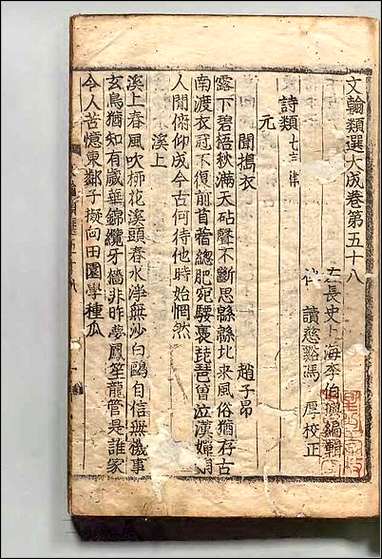 文翰類選大成卷第五十八
左長史上海李伯璵編輯
伴讀慈谿馮 厚校正
詩類 七言律
元
聞搗衣 趙子昂
露下碧梧秋滿天砧聲不斷思緜緜北來風俗猶存古
南渡衣冠不復前苜蓿總肥宛騕褭琵琶曾泣漢嬋娟
人間俯仰成今古何待他時始惘然
溪上
溪上春風吹柳花溪頭春水淨無沙白鷗自信無機事
玄鳥猶知有歲華錦纜牙檣非昨夢鳳笙龍管是誰家
今人苦憶東鄰子擬向田園學種瓜